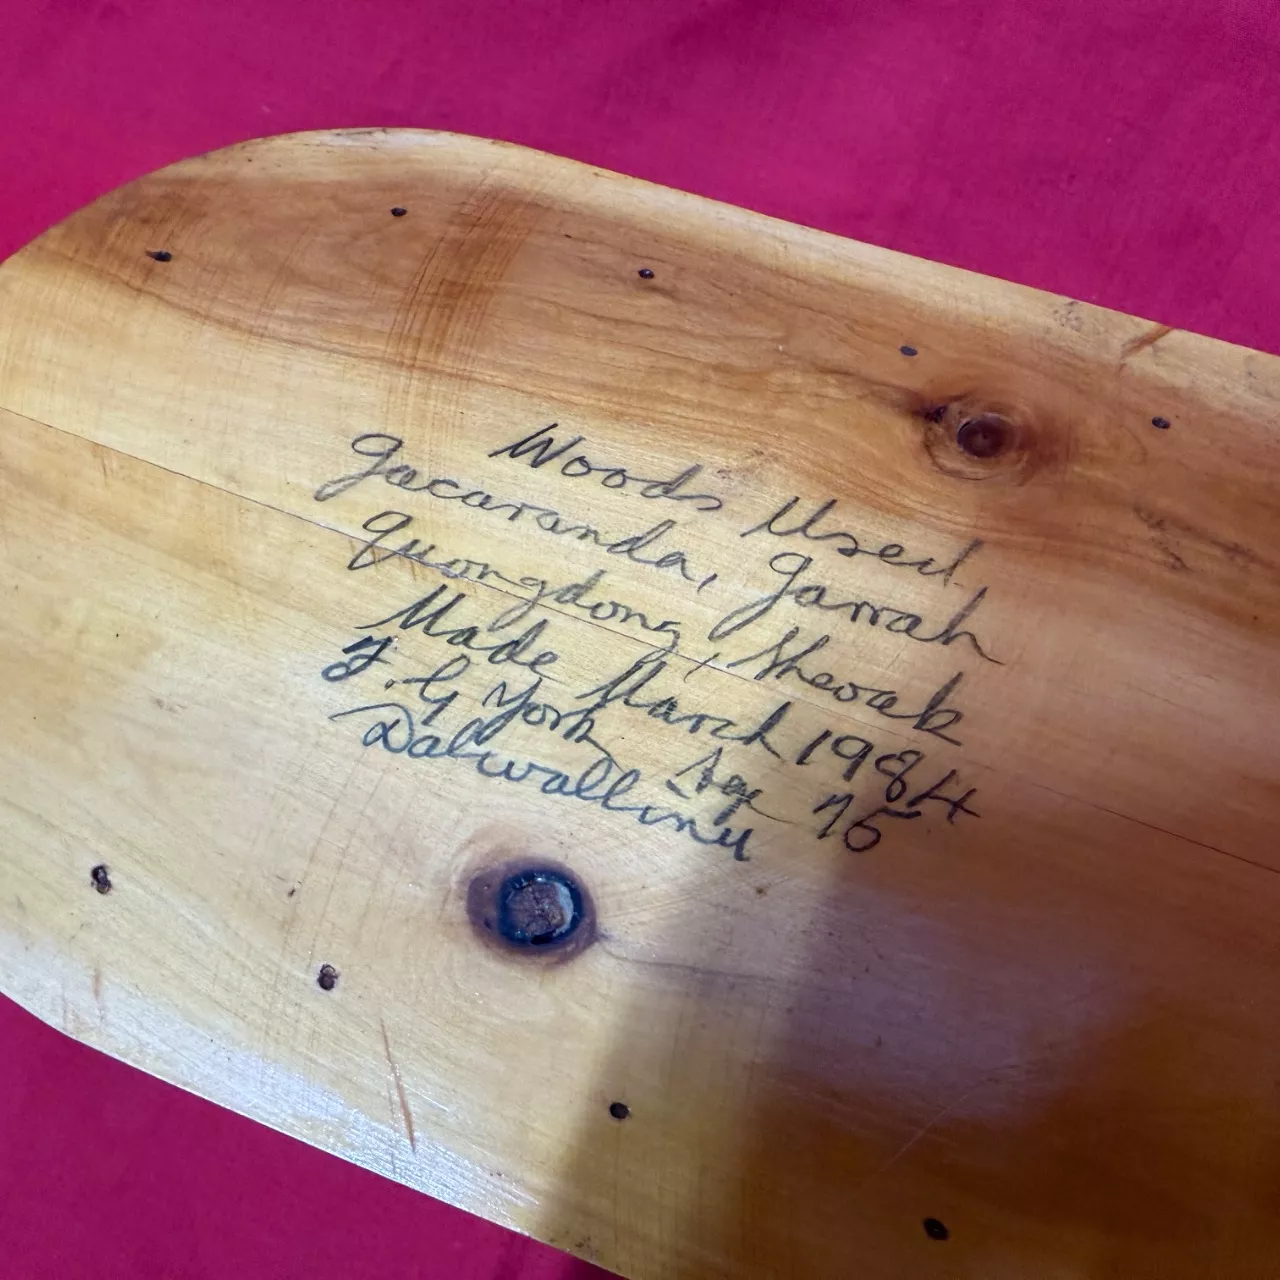 Woods Used,
Jacaranda, Jarrah
Quongdong, Sheoak
Made March 1984
F. G York Age 75
Dalwallinu